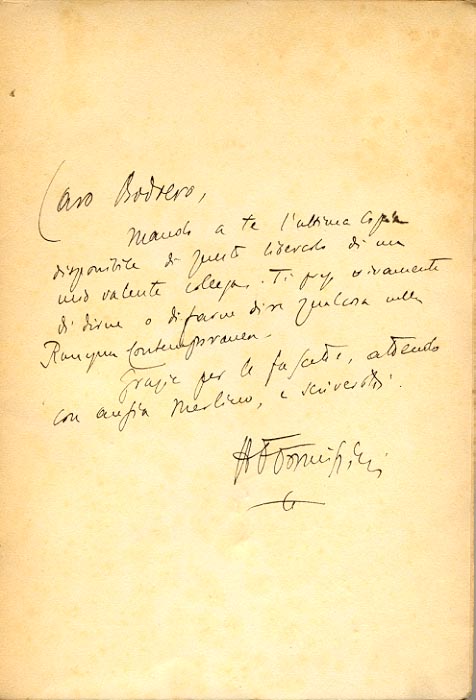 Caro Bodrero,
Mando a te l'ultima copia
disponibile di questo libercolo di un
mio valente collega. Ti prego vivamente
di dirne o di farne dire qualcosa nella
Rassegna Contemporanea.
Grazie per le fascette, attendo
con ansia Merlino, e scriverotti.
AFFormiggini